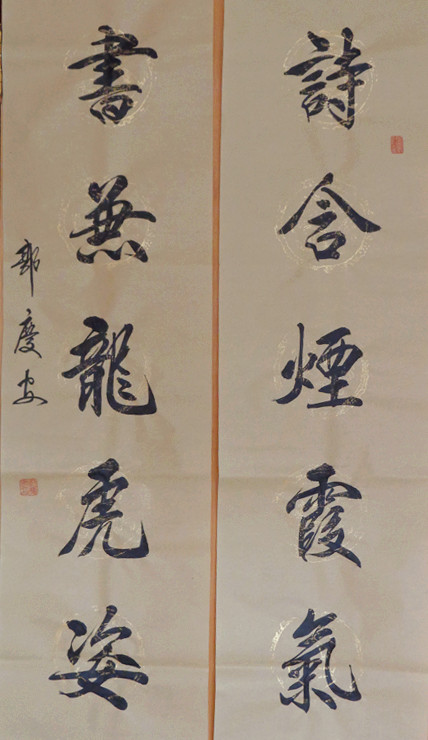 詩含煙霞氣
書兼龍虎姿
郭慶安